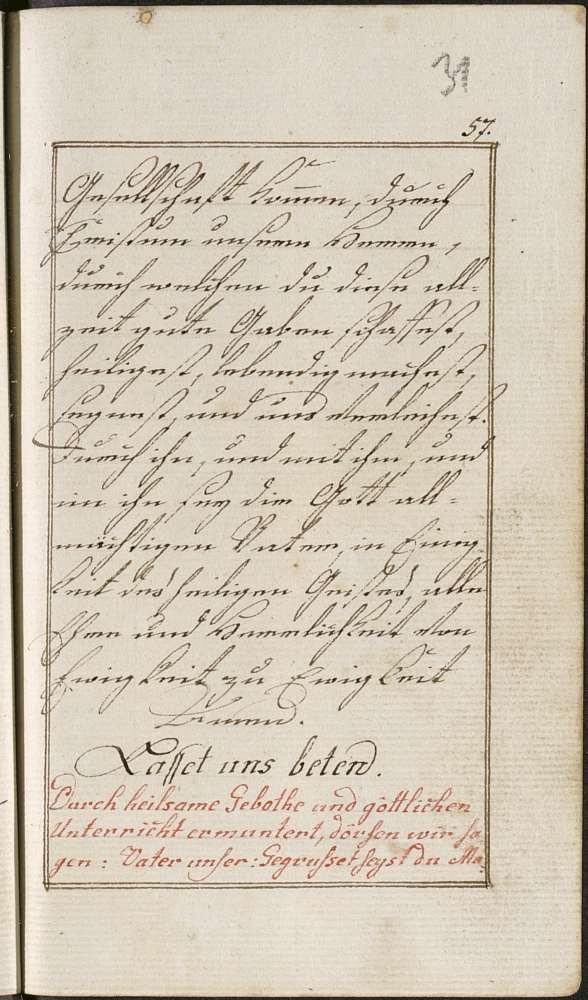 31
57.
Gesellschaft kom̄en, durch
Christum unsern Herren,
durch welchen du diese all-
zeit gute Gaben schaffest,
heiligest, lebendig machest,
segnest, und uns verleihest.
Durch ihn, und mit ihm, und
in ihn sey dir Gott all-
mächtigen Vater, in Einig-
keit des heiligen Geistes, alle
Ehre und Herrlichkeit von
Ewigkeit zu Ewigkeit
Amen.
Lasset uns beten.
Durch heilsame Gebothe und göttlichen
Unterricht ermuntert, dörfen wir sa
gen: Vater unser: Gegrusset seyst du Ma-